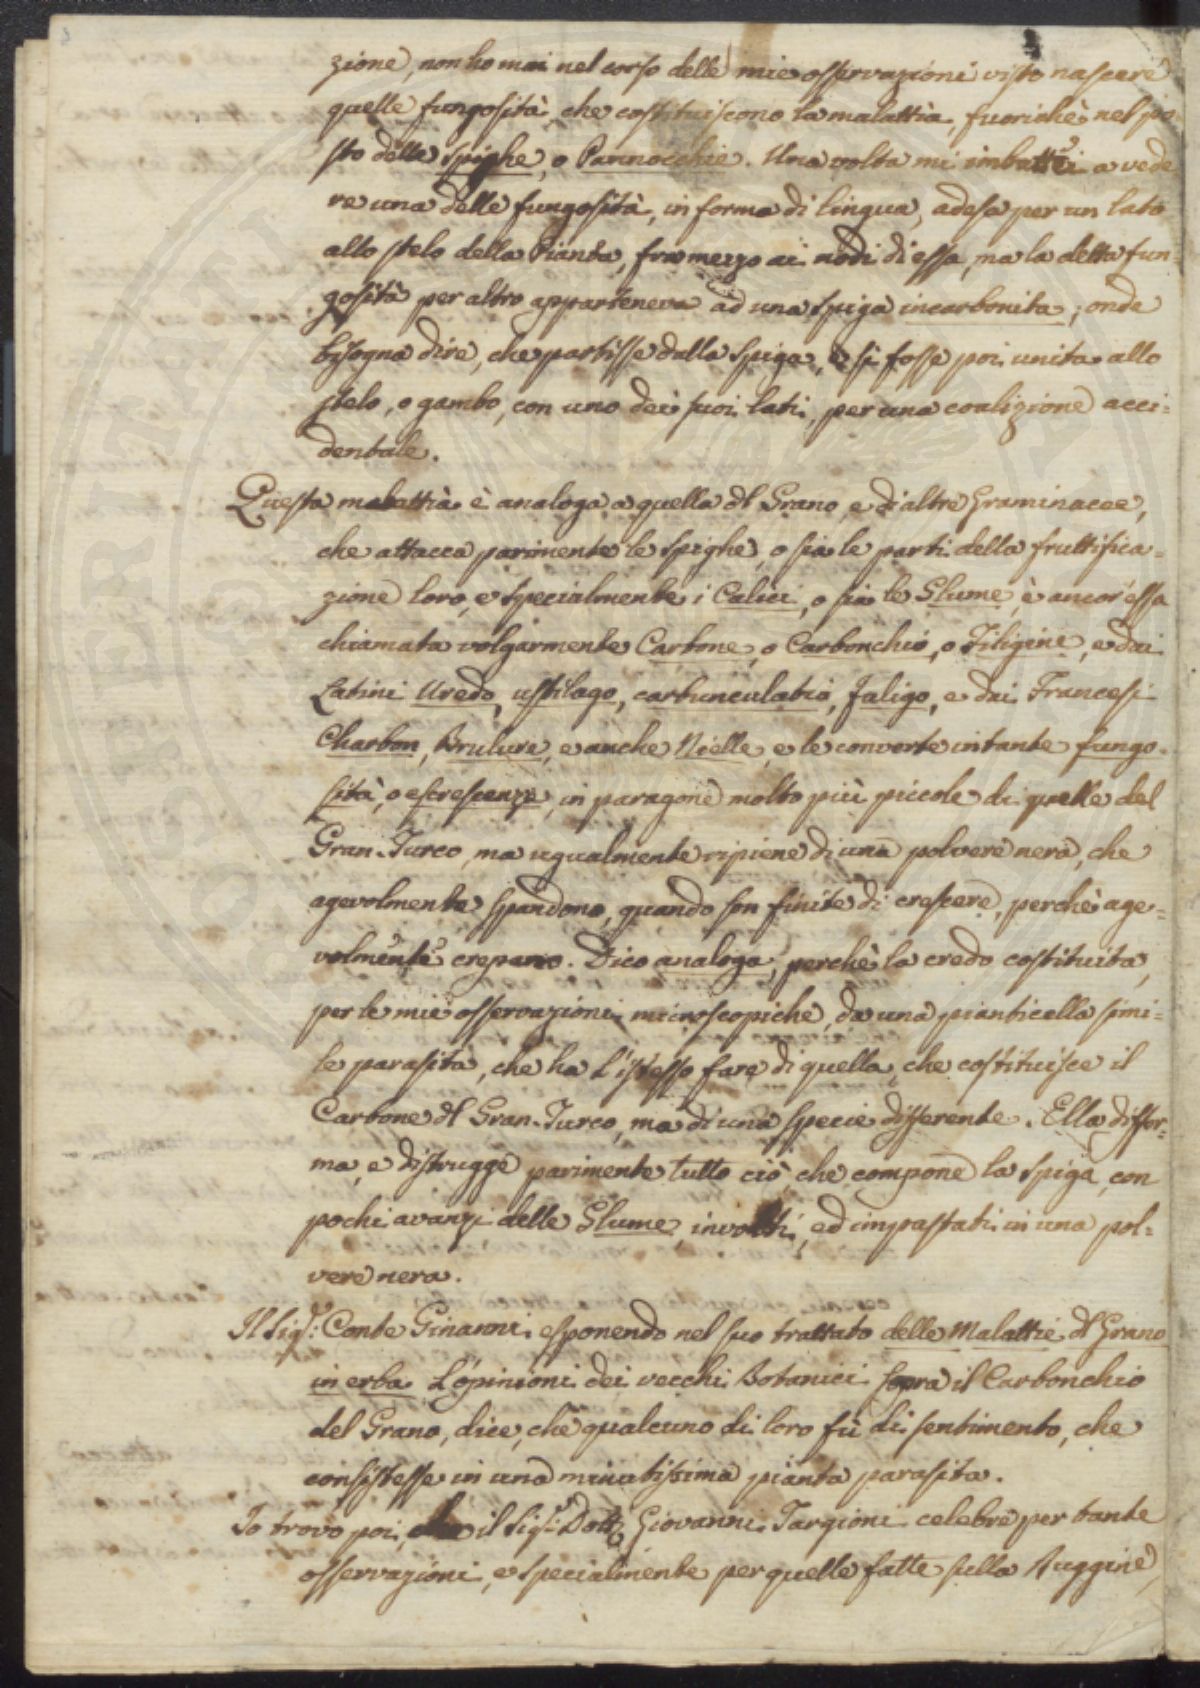 zione, non ho mai nel corso delle mie osservazioni visto nascere
quelle fungosità, che costituiscono la malattia, fuorichè nel po-
sto delle Spighe, o Pannocchie. Una volta mi imbattei a vede
re una delle fungosità, in forma di lingua, adesa per un lato
allo stelo della Pianta, framezzo ai nodi di essa, ma la detta fun-
gosità per altro apparteneva ad una spiga incarbonita; onde
bisogna dire, che partisse dalla spiga, e si fosse poi unita allo
stelo, o gambo, con uno dei suoi lati, per una coalizione acci=
dentale.
Questa malattia è analoga a quella dl Grano, e di altre Graminacee,
che attacca parimente le spighe, o sia le parti della fruttifica=
zione loro, e specialmente i Calici, o sia le Glume, è ancor essa
chiamata volgarmente Carbone, o Carbonchio, o Filigine, e dai
Latini Uredo, ustilago, carbunculatio, faligo, e dai Francesi
Charbon, Brulure, e anche Nielle, e le converte in tante fungo-
sità, o escrescenze, in paragone molto più piccole di quelle del
Gran-Turco, ma ugualmente ripiene di una polvere nera, che
agevolmente spandono, quando son finite di crescere, perchè age=
volmente crepano. Dico analoga, perchè la credo costituita,
per le mie osservazioni microscopiche, da una pianticella simi=
le parasita, che ha l'istesso fare di quella, che costituisce il
Carbone dl Gran-Turco, ma di una specie differente. Ella diffor-
ma, e distrugge parimente tutto ciò che compone la spiga, con
pochi avanzi delle Glume, involti, ed impastati in una pol=
vere nera.
Il Sigr: Conte Ginanni esponendo nel suo trattato delle Malattie dl Grano
in erba l'opinioni dei vecchi Botanici sopra il Carbonchio
del Grano, dice, che qualcuno di loro fù di sentimento, che
consistesse in una minutissima pianta parasita.
Io trovo poi, che il Sigr: Dottr Giovanni Targioni celebre per tante
osservazioni, e specialmente per quelle fatte sulla Ruggine,